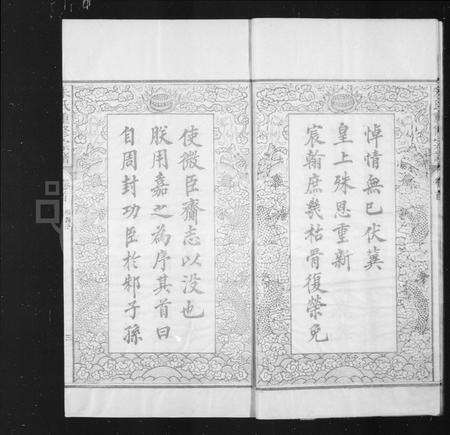 悼惜無已伏冀
皇上殊恩重新
宸翰庶幾枯骨復榮免
使微臣齎志以没也
朕用嘉之為序其首曰
自周封功臣於邾子孫